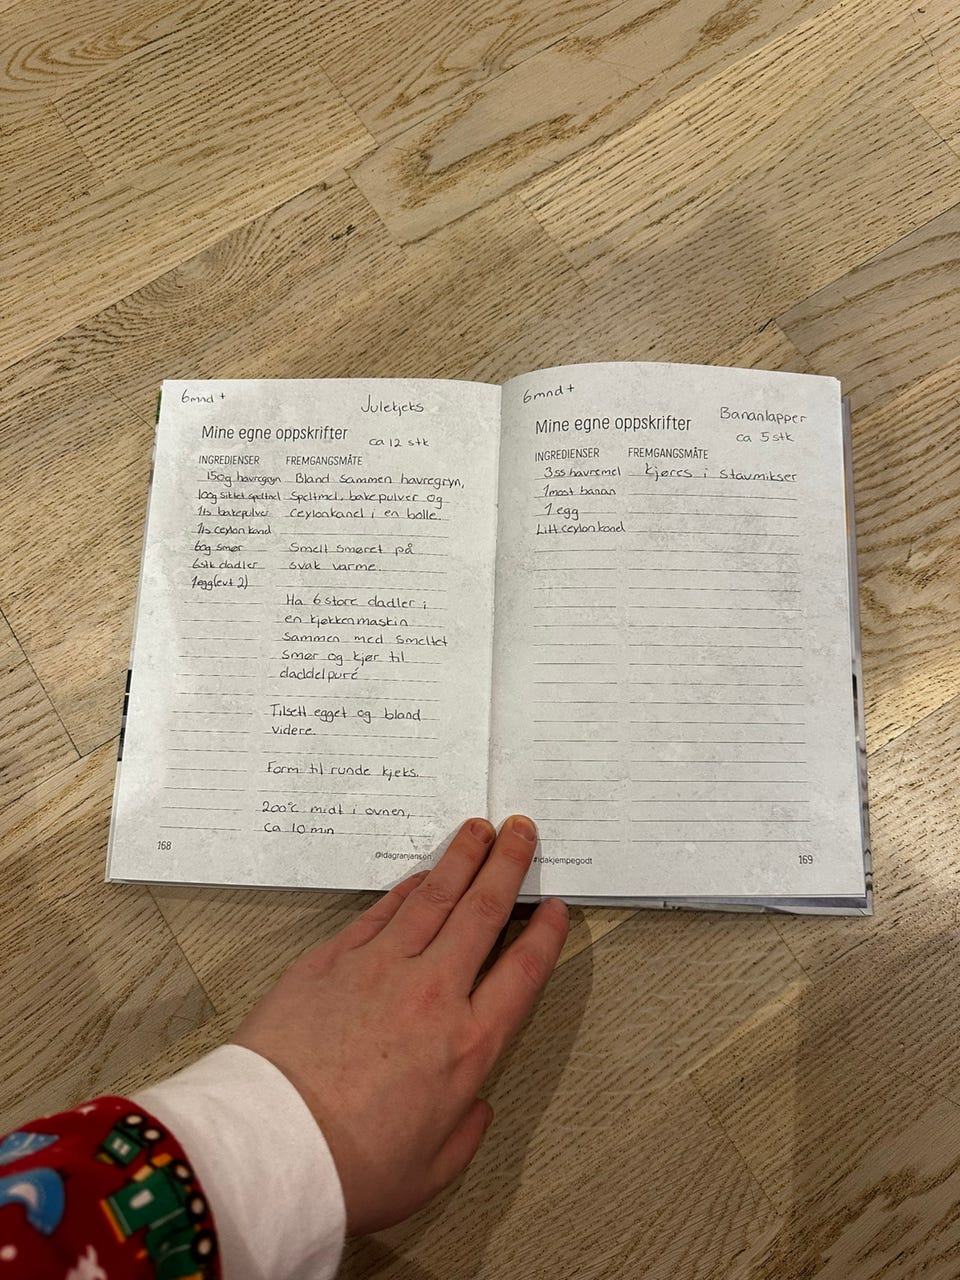 6mnd +
Julekjeks
Mine egne oppskrifter
ca 12 stk
INGREDIENSER FREMGANGSMÅTE
150g havregryn Bland sammen havregryn,
100g siktet speltmel speltmel, bakepulver og
1ts bakepulver ceylonkanel i en bolle.
1ts ceylon kanel
60g smør Smelt smøret på
6stk dadler svak varme.
1egg(evt 2)
Ha 6 store dadler i
en kjøkkenmaskin
sammen med smeltet
smør og kjør til
daddelpuré
Tilsett egget og bland
videre.
Form til runde kjeks.
200°C midt i ovnen,
ca 10 min
168
@idagranjansen
6mnd +
Bananlapper
Mine egne oppskrifter
ca 5 stk
INGREDIENSER FREMGANGSMÅTE
3ss havremel Kjøres i stavmikser
1most banan
1 egg
Litt ceylonkanel
#idakjempegodt
169